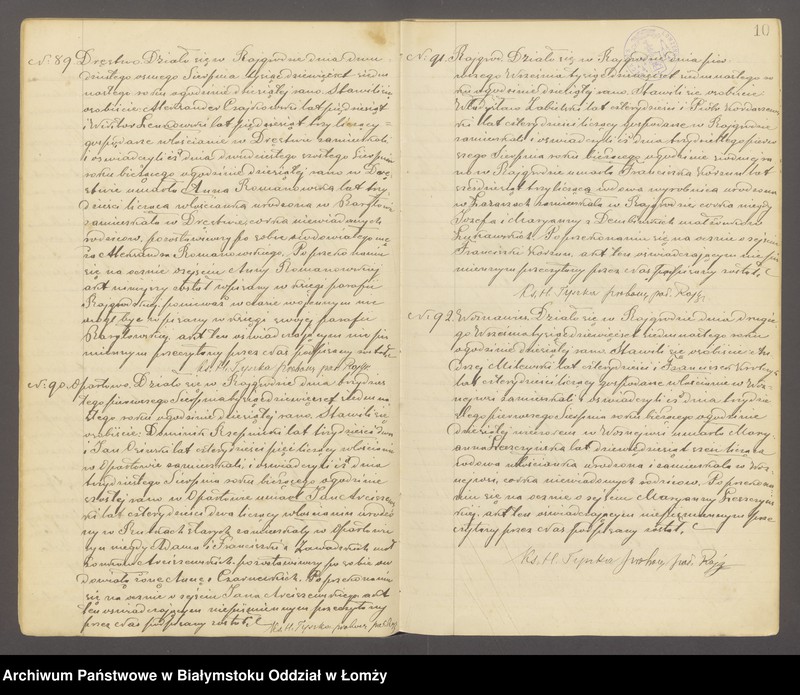 10
№ 89 Dręstwo. Działo się w Rajgrodzie dnia dwu-
dziestego ósmego Sierpnia tysiąc dziewięćset siedm
nastego roku o godzinie dziesiątej rano. Stawili się
osobiście Aleksander Czajkowski lat pięćdziesiąt
i Wiktor lat pięćdziesiąt trzy liczący
gospodarze włościanie w Dręstwie zamieszkali
i oświadczyli iż dnia dwudziestego szóstego Sierpnia
roku bieżącego o godzinie dziesiątej rano w Drę-
stwie umarła Anna Romanowska lat trzy-
dzieści licząca włościanka urodzona w
zamieszkała w Dręstwie, córka niewiadomych
rodziców, pozostawiwszy po sobie owdowiałego mę-
ża Aleksandra Romanowskiego. Po przekonaniu
się na ocznie o zejściu Anny Romanowskiej
akt niniejszy został wpisany w księgi parafii
Rajgrodzkiej ponieważ w czasie wojennym nie
mógł być wpisany w księgi swojej parafii
akt ten oświadczającym nie pi-
śmiennym przeczytany przez Nas podpisany został.
Ks. H. Tyszka probosz. par. Rajg.
№ 90. Opartowo. Działo się w Rajgrodzie dnia trzydzies-
tego pierwszego Sierpnia tysiąc dziewięćset siedmna-
stego roku o godzinie dziesiątej rano. Stawili się
osobiście: Dominik lat trzydzieści dwa
i Jan lat czterdzieści pięć liczący włościanie
w Opartowie zamieszkali, i oświadczyli iż dnia
trzydziestego Sierpnia roku bieżącego o godzinie
szóstej rano w Opartowie umarł Jan Arciszew-
ski lat czterdzieści dwa liczący włościanin urodzo-
ny w Rutkach starych zamieszkały w Opartowie
syn niegdy Adama i Franciszki z Zawadzkich mał-
żonków Arciszewskich, pozostawiwszy po sobie ow-
dowiałą żonę Annę z Czarneckich. Po przekonaniu
się na ocznie o zejściu Jana Arciszewskiego akt
ten oświadczającym niepiśmiennym przeczytany
przez Nas podpisany został.
Ks. H. Tyszka probosz. par. Rajg.
№ 91. Rajgród. Działo się w Rajgrodzie dnia pier-
wszego Września tysiąc dziewięćset siedmnastego ro-
ku o godzinie dziesiątej rano. Stawili się osobiście
Władysław Zabielski lat czterdzieści i Piotr
lat czterdzieści liczący gospodarze w Rajgrodzie
zamieszkali i oświadczyli iż dnia trzydziestego pierw-
szego Sierpnia roku bieżącego o godzinie siódmej ra-
no w Rajgrodzie umarła Franciszka lat
sześćdziesiąt trzy licząca wdowa wyrobnica urodzona
w zamieszkała w Rajgrodzie córka niegdy
Józefa i Maryanny z małżonków
Po przekonaniu się na ocznie o zejściu
Franciszki akt ten oświadczającym nie pi-
śmiennym przeczytany przez Nas podpisany został.
Ks. H. Tyszka probosz. par. Rajg.
№ 92. Woznawieś. Działo się w Rajgrodzie dnia drugie-
go Września tysiąc dziewięćset siedmnastego roku
o godzinie dziesiątej rano. Stawili się osobiście An-
drzej Milewski lat czterdzieści i Franciszek
lat czterdzieści liczący gospodarze włościanie w Woz-
nejwsi zamieszkali i oświadczyli iż dnia trzydzie-
stego pierwszego Sierpnia roku bieżącego o godzinie
dziesiątej wieczorem w Woznejwsi umarła Mary-
anna lat dziewięćdziesiąt licząca
wdowa włościanka urodzona i zamieszkała w Woz-
nejwsi, córka niewiadomych rodziców. Po przekona-
niu się na ocznie o zejściu Maryanny
akt ten oświadczającym niepiśmiennym prze-
czytany przez Nas podpisany został.
Ks. H. Tyszka probosz. par. Rajg.
Archiwum Państwowe w Białymstoku Oddział w Łomży